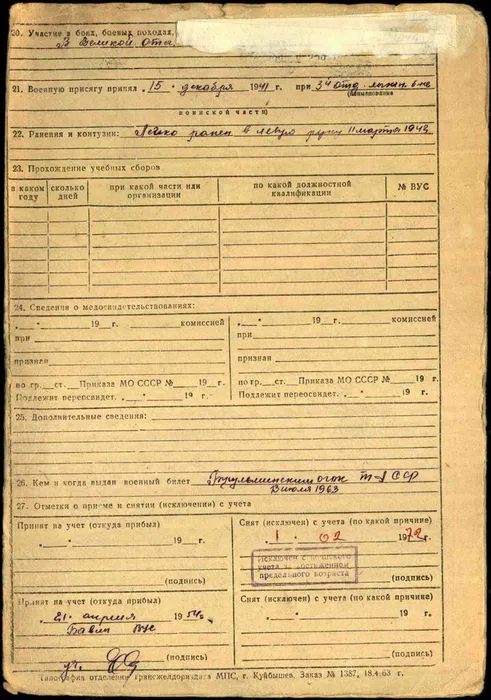 20. Участие в боях, боевых походах,
В Великой Оте
21. Военную присягу принял „15" декабря 1941 г. при 34 отд.
(наименование
воинской части)
22. Ранения и контузии: Легко ранен в левую руку 11 марта 1942
23. Прохождение учебных сборов
в каком году | сколько дней | при какой части или организации | по какой должностной квалификации | № ВУС
24. Сведения о медосвидетельствованиях:
„__"____19__г.____комиссией „__"____19__г.____комиссией
при____ при____
признан____ признан____
по гр.__ст.__Приказа МО СССР №____19__г. по гр.__ст.__Приказа МО СССР №____19__г.
Подлежит переосвидет. „__"____19 г. Подлежит переосвидет. „__"____19 г.
25. Дополнительные сведения:
26. Кем и когда выдан военный билет
3 июля 1963
27. Отметки о приеме и снятии (исключении) с учета
Принят на учет (откуда прибыл)
„__"____19__г.
(подпись)
Снят (исключен) с учета (по какой причине)
„1" 02 1972 г.
Исключен с воинского
учета за достижением
предельного возраста
(подпись)
Принят на учет (откуда прибыл)
„21" апреля 1954 г.
(подпись)
Снят (исключен) с учета (по какой причине)
„__"____19 г.
(подпись)
Типография отделения Трансжелдориздата МПС, г. Куйбышев. Заказ № 1387, 18.4.63 г.